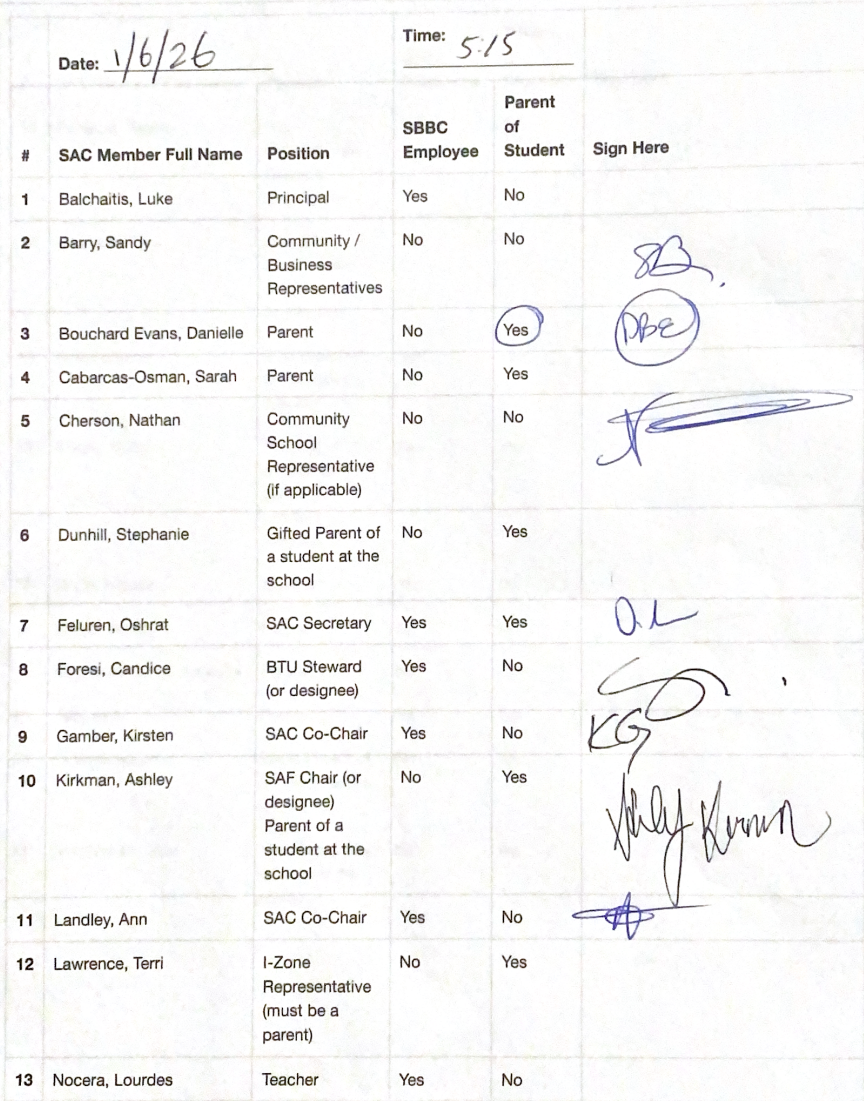 Date: 1/6/26 Time: 5:15
# SAC Member Full Name Position SBBC Employee Parent of Student Sign Here
1 Balchaitis, Luke Principal Yes No
2 Barry, Sandy Community / No No SB
Business
Representatives
3 Bouchard Evans, Danielle Parent No Yes DBE
4 Cabarcas-Osman, Sarah Parent No Yes
5 Cherson, Nathan Community No No
School
Representative
(if applicable)
6 Dunhill, Stephanie Gifted Parent of No Yes
a student at the
school
7 Feluren, Oshrat SAC Secretary Yes Yes
8 Foresi, Candice BTU Steward Yes No
(or designee)
9 Gamber, Kirsten SAC Co-Chair Yes No KG
10 Kirkman, Ashley SAF Chair (or No Yes
designee)
Parent of a
student at the
school
11 Landley, Ann SAC Co-Chair Yes No
12 Lawrence, Terri I-Zone No Yes
Representative
(must be a
parent)
13 Nocera, Lourdes Teacher Yes No